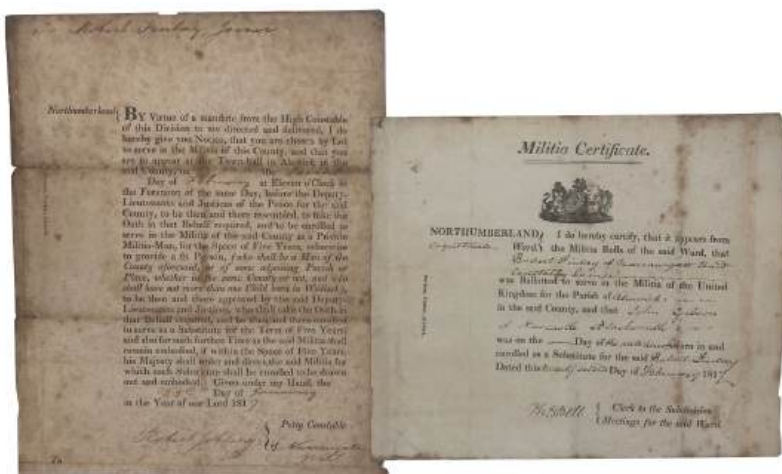 Robert Finlay, Joiner
Northumberland
BY Virtue of a mandate from the High Constable
of this Division to me directed and delivered, I do
hereby give you Notice, that you are chosen by Lot
to serve in the Militia of this County, and that you
are to appear at the Town-hall in Alnwick in the
said County, on
Day of February at Eleven o'Clock in
the Forenoon of the same Day, before the Deputy-
Lieutenants and Justices of the Peace for the said
County, to be then and there assembled, to take the
Oath in that Behalf required, and to be enrolled to
serve in the Militia of the said County as a Private
Militia-Man, for the Space of Five Years, otherwise
to provide a fit Person, (who shall be a Man of the
County aforesaid, or of some adjoining Parish or
Place, whether in the same County or not, and who
shall have not more than one Child born in Wedlock),
to be then and there approved by the said Deputy-
Lieutenants and Justices, who shall take the Oath in
that Behalf required, and be then and there enrolled
to serve as a Substitute for the Term of Five Years,
and also for such further Time as the said Militia shall
remain embodied, if within the Space of Five Years,
his Majesty shall order and direct the said Militia for
which such Substitute shall be enrolled to be drawn
out and embodied. Given under my Hand, the
Day of January
in the Year of our Lord 1817
Petty Constable
of
To
Militia Certificate.
NORTHUMBERLAND,
Ward.
I do hereby certify, that it appears from
the Militia Rolls of the said Ward, that
Robert Finlay of
was Ballotted to serve in the Militia of the United
Kingdom for the Parish of Alnwick
in the said County, and that John
of Newcastle
was on the Day of sworn in and
enrolled as a Substitute for the said Robert Finlay
Dated this twenty second Day of February 1817
Clerk to the Subdivision
Meetings for the said Ward.